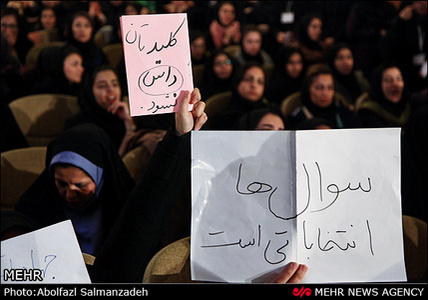 MEHR NEWS AGENCY
کلید تان
داس
نشود
سوال ها
انتخاباتی است
MEHR
Photo:Abolfazl Salmanzadeh
MEHR NEWS AGENCY